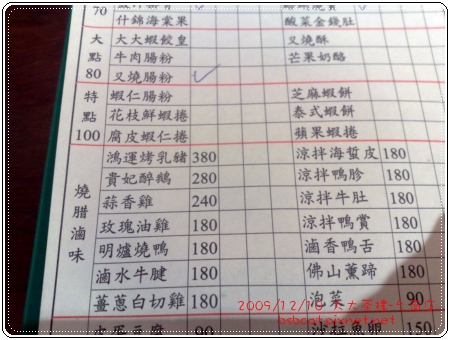 70
什錦海棠果 酸菜金錢肚
大點80
大大蝦餃皇 叉燒酥
牛肉腸粉 芒果奶酪
叉燒腸粉
特點100
蝦仁腸粉 芝麻蝦餅
花枝鮮蝦捲 泰式蝦餅
腐皮蝦仁捲 蘋果蝦捲
燒腊滷味
鴻運烤乳豬 380 涼拌海蜇皮 180
貴妃醉鵝 280 涼拌鴨胗 180
蒜香雞 240 涼拌牛肚 180
玫瑰油雞 180 涼拌鴨賞 180
明爐燒鴨 180 滷香鴨舌 180
滷水牛腱 180 佛山薰蹄 180
薑蔥白切雞 180 泡菜 90
皮蛋豆腐 90 沙拉魚卵 150
2009/12/10 大大茶樓